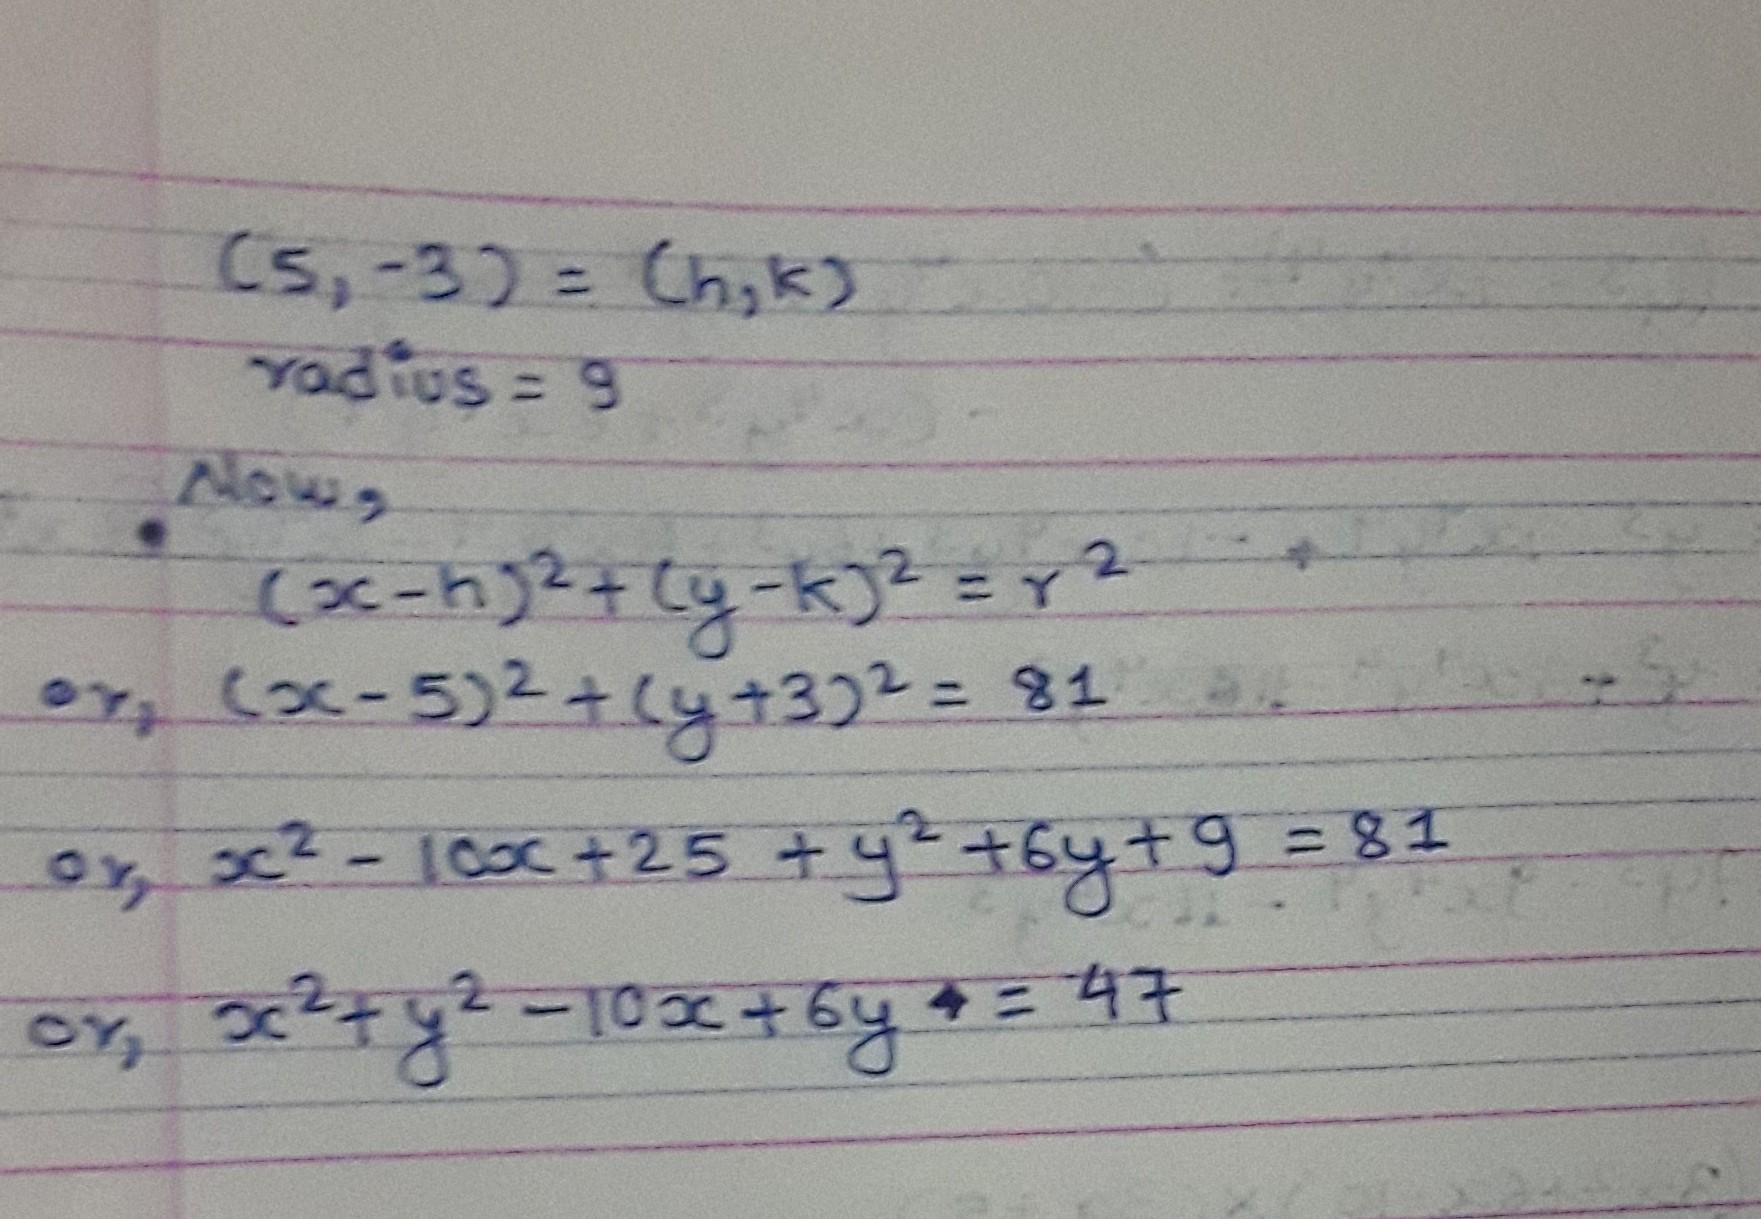 (5, -3) = (h, k)
radius = 9
Now,
(x-h)² + (y-k)² = r²
or, (x-5)² + (y+3)² = 81
or, x² - 10x + 25 + y² + 6y + 9 = 81
or, x² + y² - 10x + 6y = 47